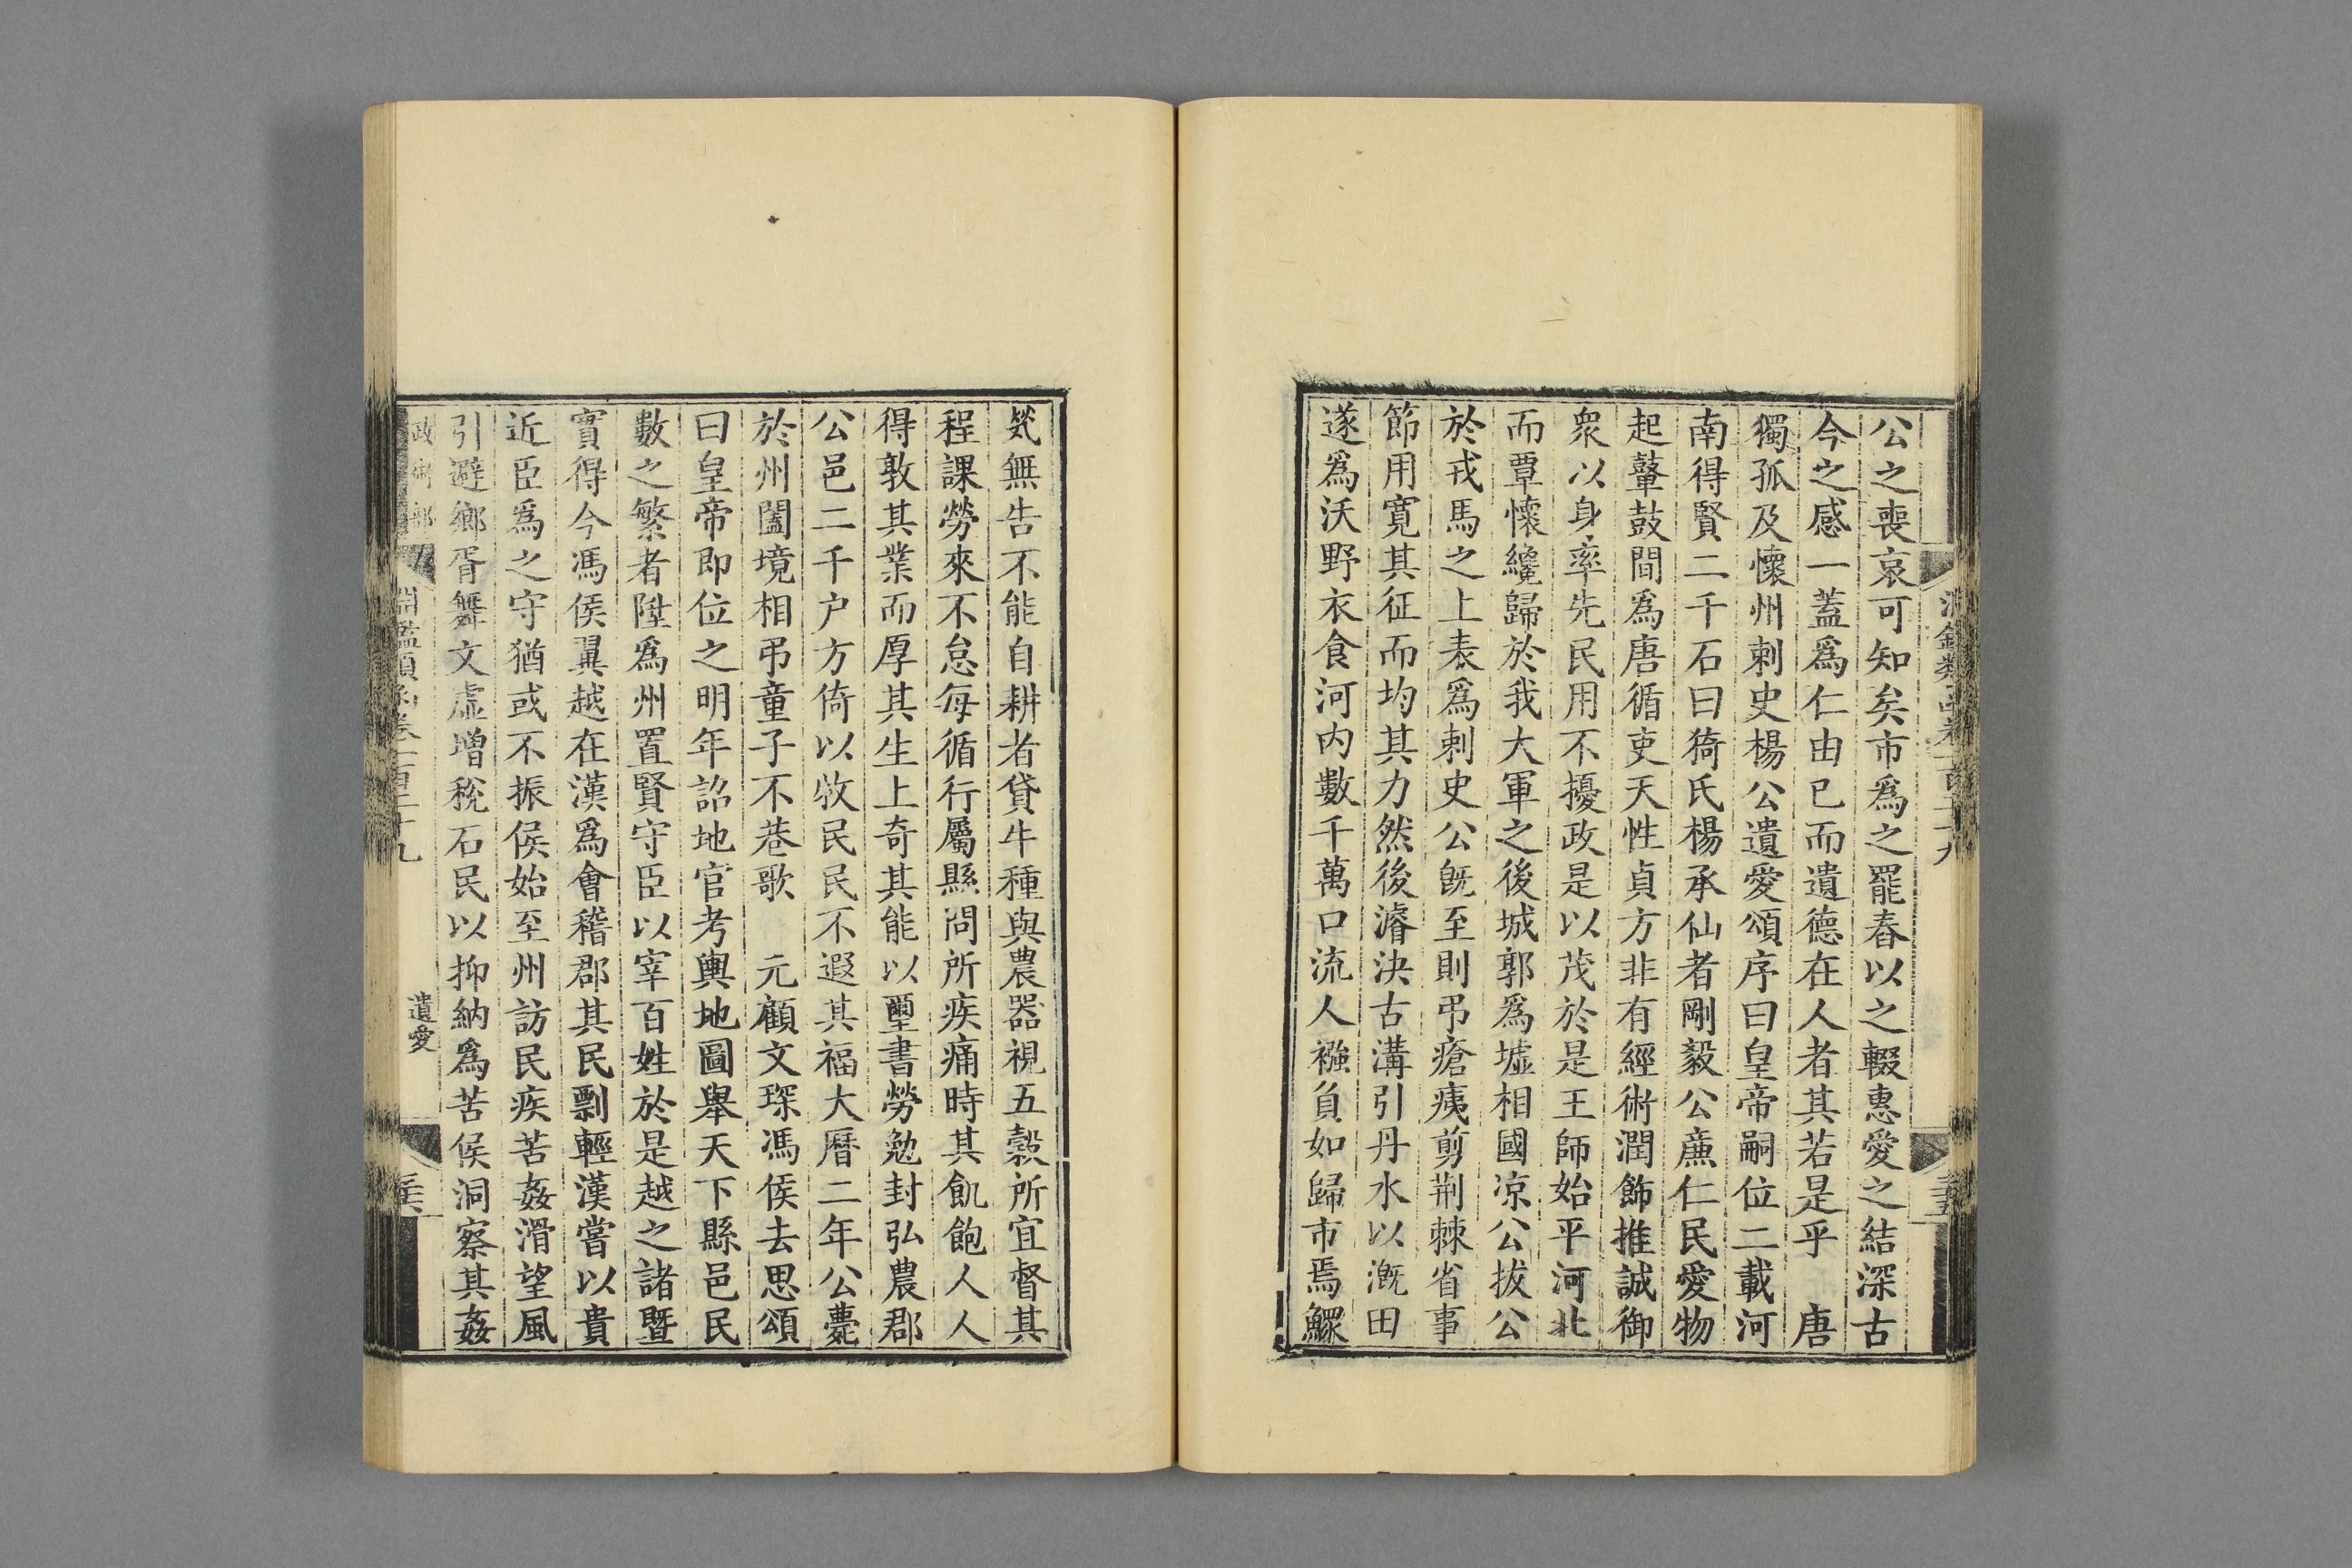 公之喪哀可知矣市爲之罷舂以之輟惠愛之結深古
今之感一蓋爲仁由已而遺德在人者其若是乎　唐
獨孤及懷州刺史楊公遺愛頌序曰皇帝嗣位二載河
南得賢二千石曰猗氏楊承仙者剛毅公亷仁民愛物
起鼙鼓間爲唐循吏天性貞方非有經術潤飾推誠御
衆以身率先民用不擾政是以茂於是王師始平河北
而覃懷纔歸於我大軍之後城郭爲墟相國凉公拔公
於戎馬之上表爲刺史公旣至則弔瘡痍剪荆棘省事
節用寛其征而均其力然後濬決古溝引丹水以漑田
遂爲沃野衣食河内數千萬口流人襁負如歸市焉鰥
惸無告不能自耕者貸牛種與農器視五穀所宜督其
程課勞來不怠每循行屬縣問所疾痛時其飢飽人人
得敦其業而厚其生上奇其能以璽書勞勉封弘農郡
公邑二千户方倚以牧民民不遐其福大曆二年公薨
於州闔境相弔童子不巷歌　元顧文琛馮侯去思頌
曰皇帝即位之明年詔地官考輿地圖舉天下縣邑民
數之繁者陞爲州置賢守臣以宰百姓於是越之諸暨
實得今馮侯翼越在漢爲會稽郡其民剽輕漢嘗以貴
近臣爲之守猶或不振侯始至州訪民疾苦姦滑望風
引避鄉胥舞文虛增稅石民以抑納爲苦侯洞察其姦
政術部
淵鑑類函卷一百二十九
遺愛